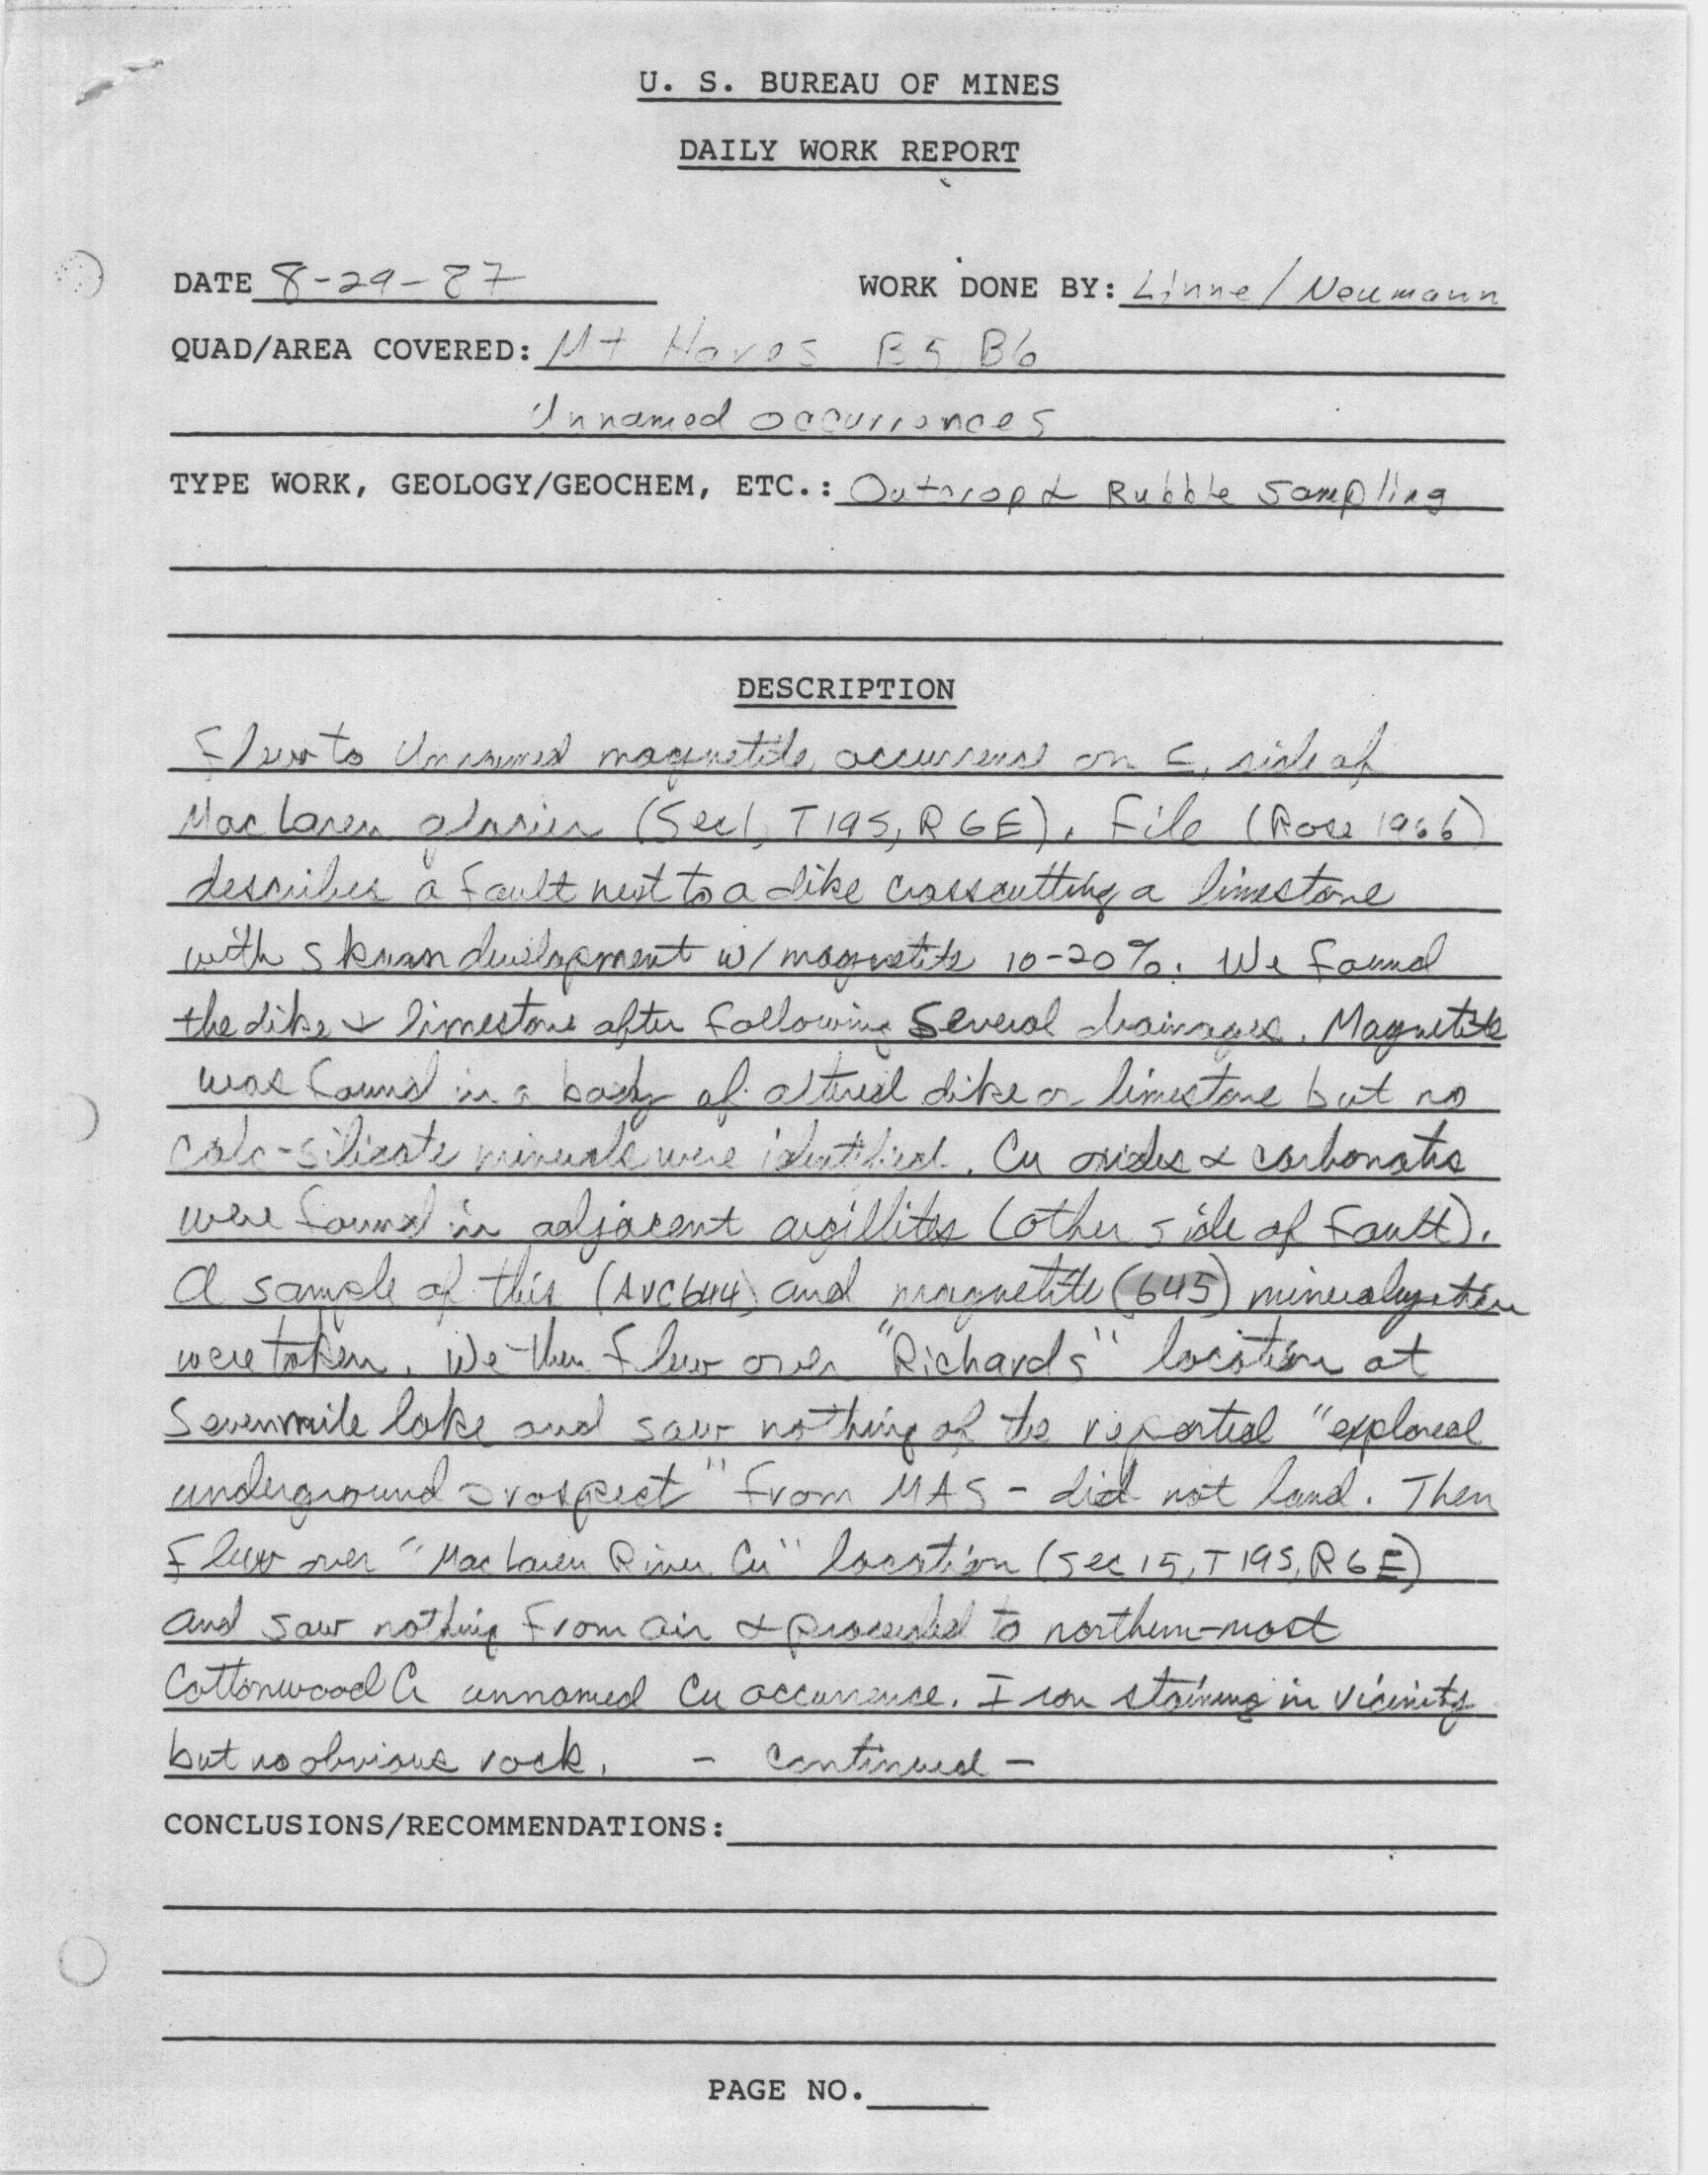 U. S. BUREAU OF MINES
DAILY WORK REPORT
DATE 8-29-87 WORK DONE BY: Linne/Neumann
QUAD/AREA COVERED: Mt Hayes B5, B6
Unnamed occurrences
TYPE WORK, GEOLOGY/GEOCHEM, ETC.: Outcrop & Rubble Sampling
DESCRIPTION
Flew to Unnamed magnetite occurrence on E. side of
MacLaren glacier (Sec 1, T19S, R6E). File (Rose 1966)
describes a fault next to a dike crosscutting a limestone
with skarn development w/ magnetite 10-20%. We found
the dike & limestone after following several drainages. Magnetite
was found in a body of altered dike or limestone but no
calc-silicate minerals were identified. Cu oxides & carbonates
were found in adjacent argillites (other side of fault).
A sample of this (AVC644) and magnetite (645) mineralization
were taken. We then flew over "Richards" location at
Sevenmile lake and saw nothing of the reported "explored
underground prospect" from MAS - did not land. Then
flew over "MacLaren River Cu" location (Sec 15, T19S, R6E)
and saw nothing from air & proceeded to northern-most
Cottonwood Cr unnamed Cu occurrence. Iron staining in vicinity
but no obvious rock. - continued -
CONCLUSIONS/RECOMMENDATIONS:
PAGE NO.